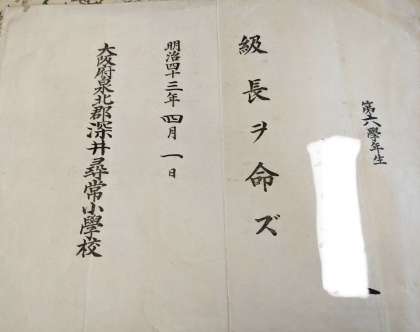 第六學年生
級長ヲ命ズ
明治四十三年四月一日
大阪府泉北郡深井尋常小學校